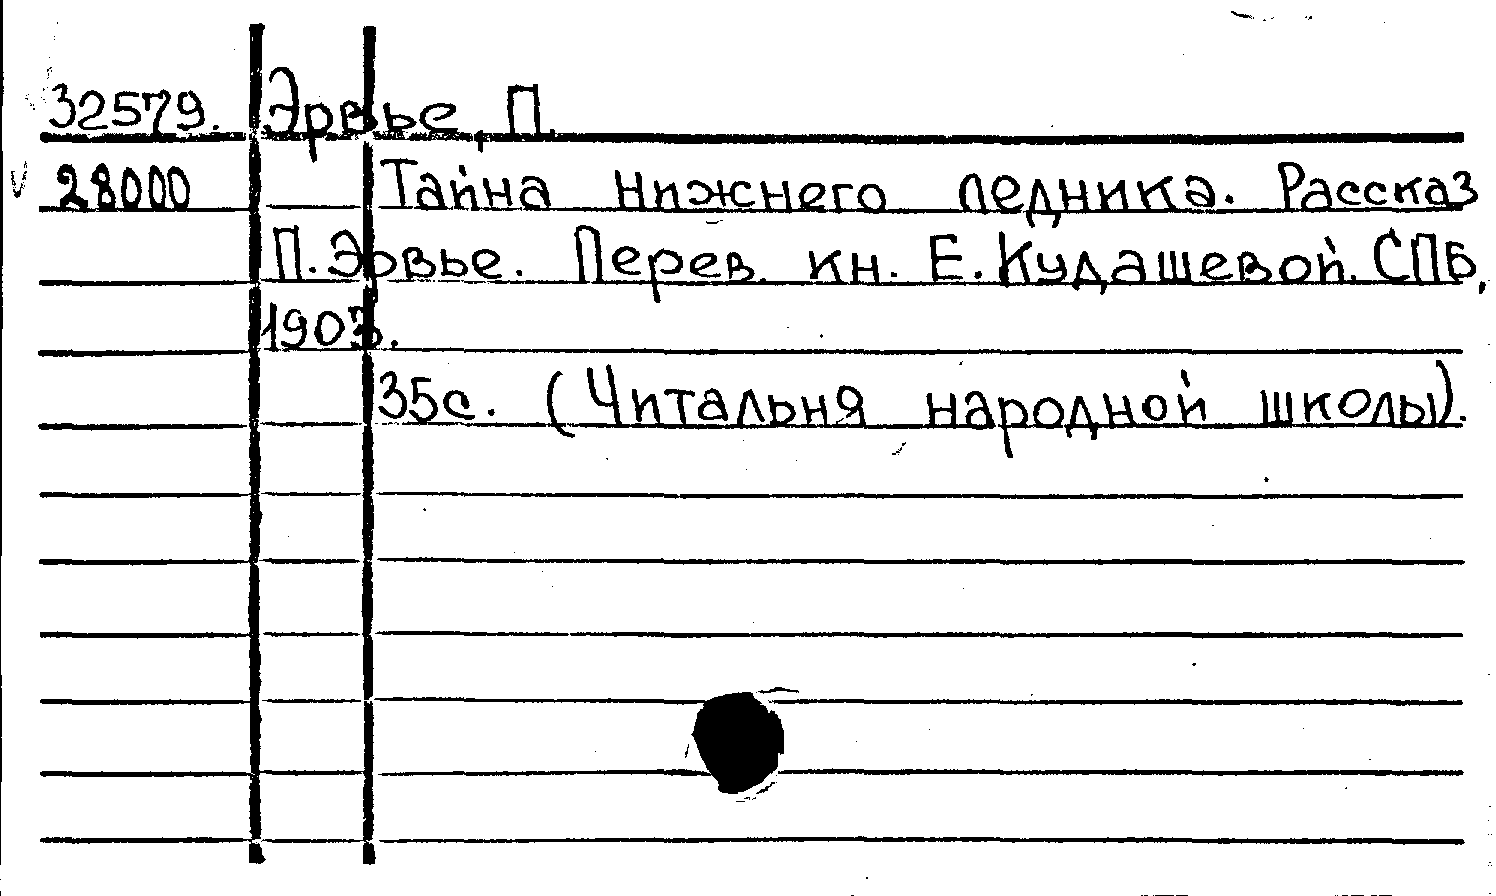 32579. Эрвье, П.
28000 Тайна Нижнего ледника. Рассказ
П. Эрвье. Перев. кн. Е. Кудашевой. СПБ,
1903.
35с. (Читальня народной школы).